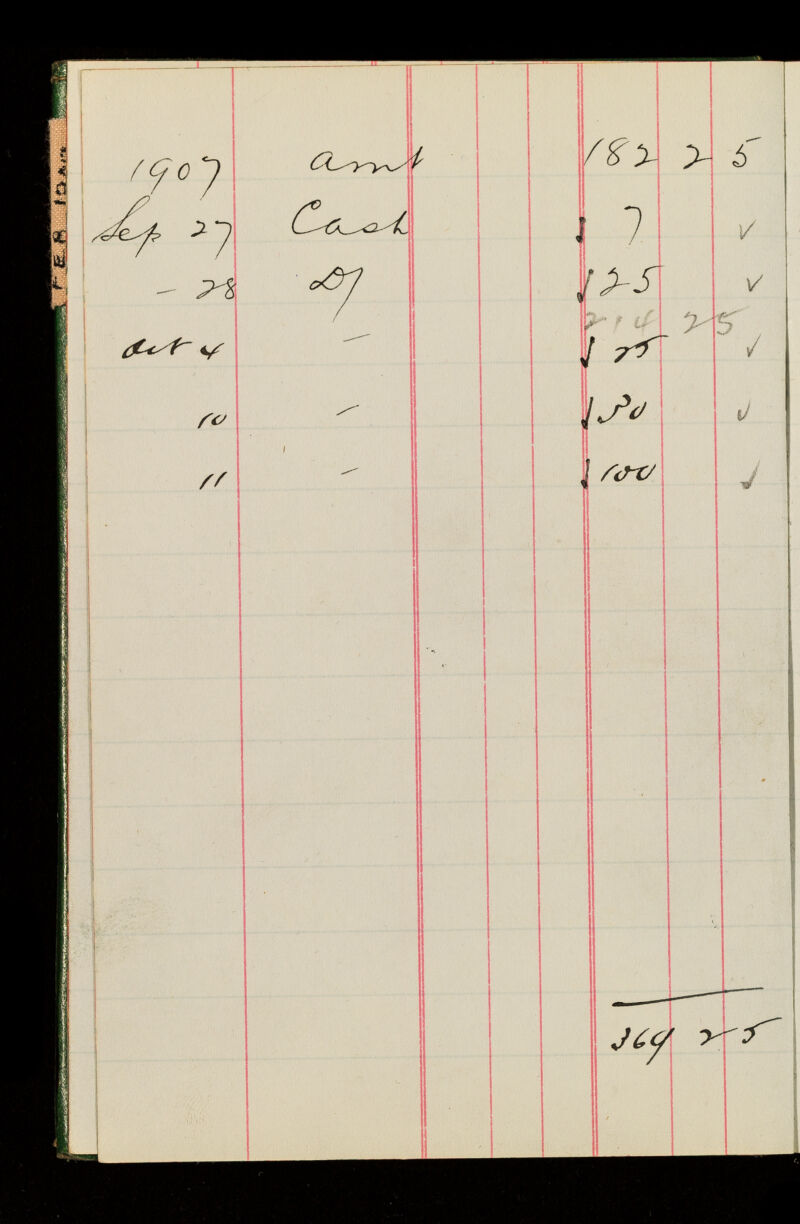 FEB 10
1907 Amt 182 25
Sep 27 Cash √ 7 ✓
– 28 D/ √ 25 ✓
214 25
Oct 4 – √ 25 ✓
10 – √ 50 ✓
11 – √ 100 ✓
369 25